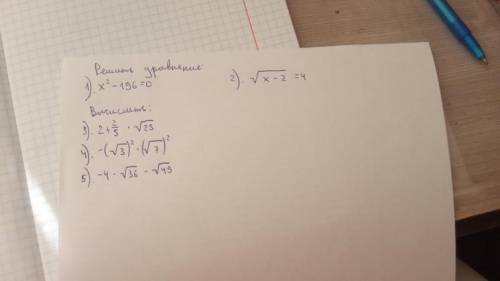 Решить уравнение:
1). x² - 196 = 0
2). √(x - 2) = 4
Вычислить:
3). 2 + 2/5 · √25
4). -(√3)² · (√7)²
5). -4 · √36 - √49